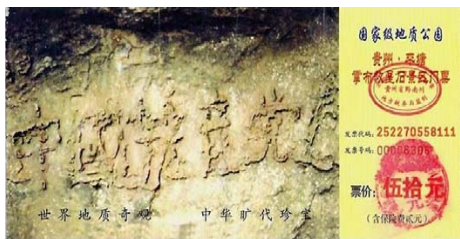 中國共産党
世界地质奇观 中华旷代珍宝
国家级地质公园
贵州·平塘
掌布 景区门票
发票代码：252270558111
发票号码：00006306
票价：伍拾元
（含保险费贰元）